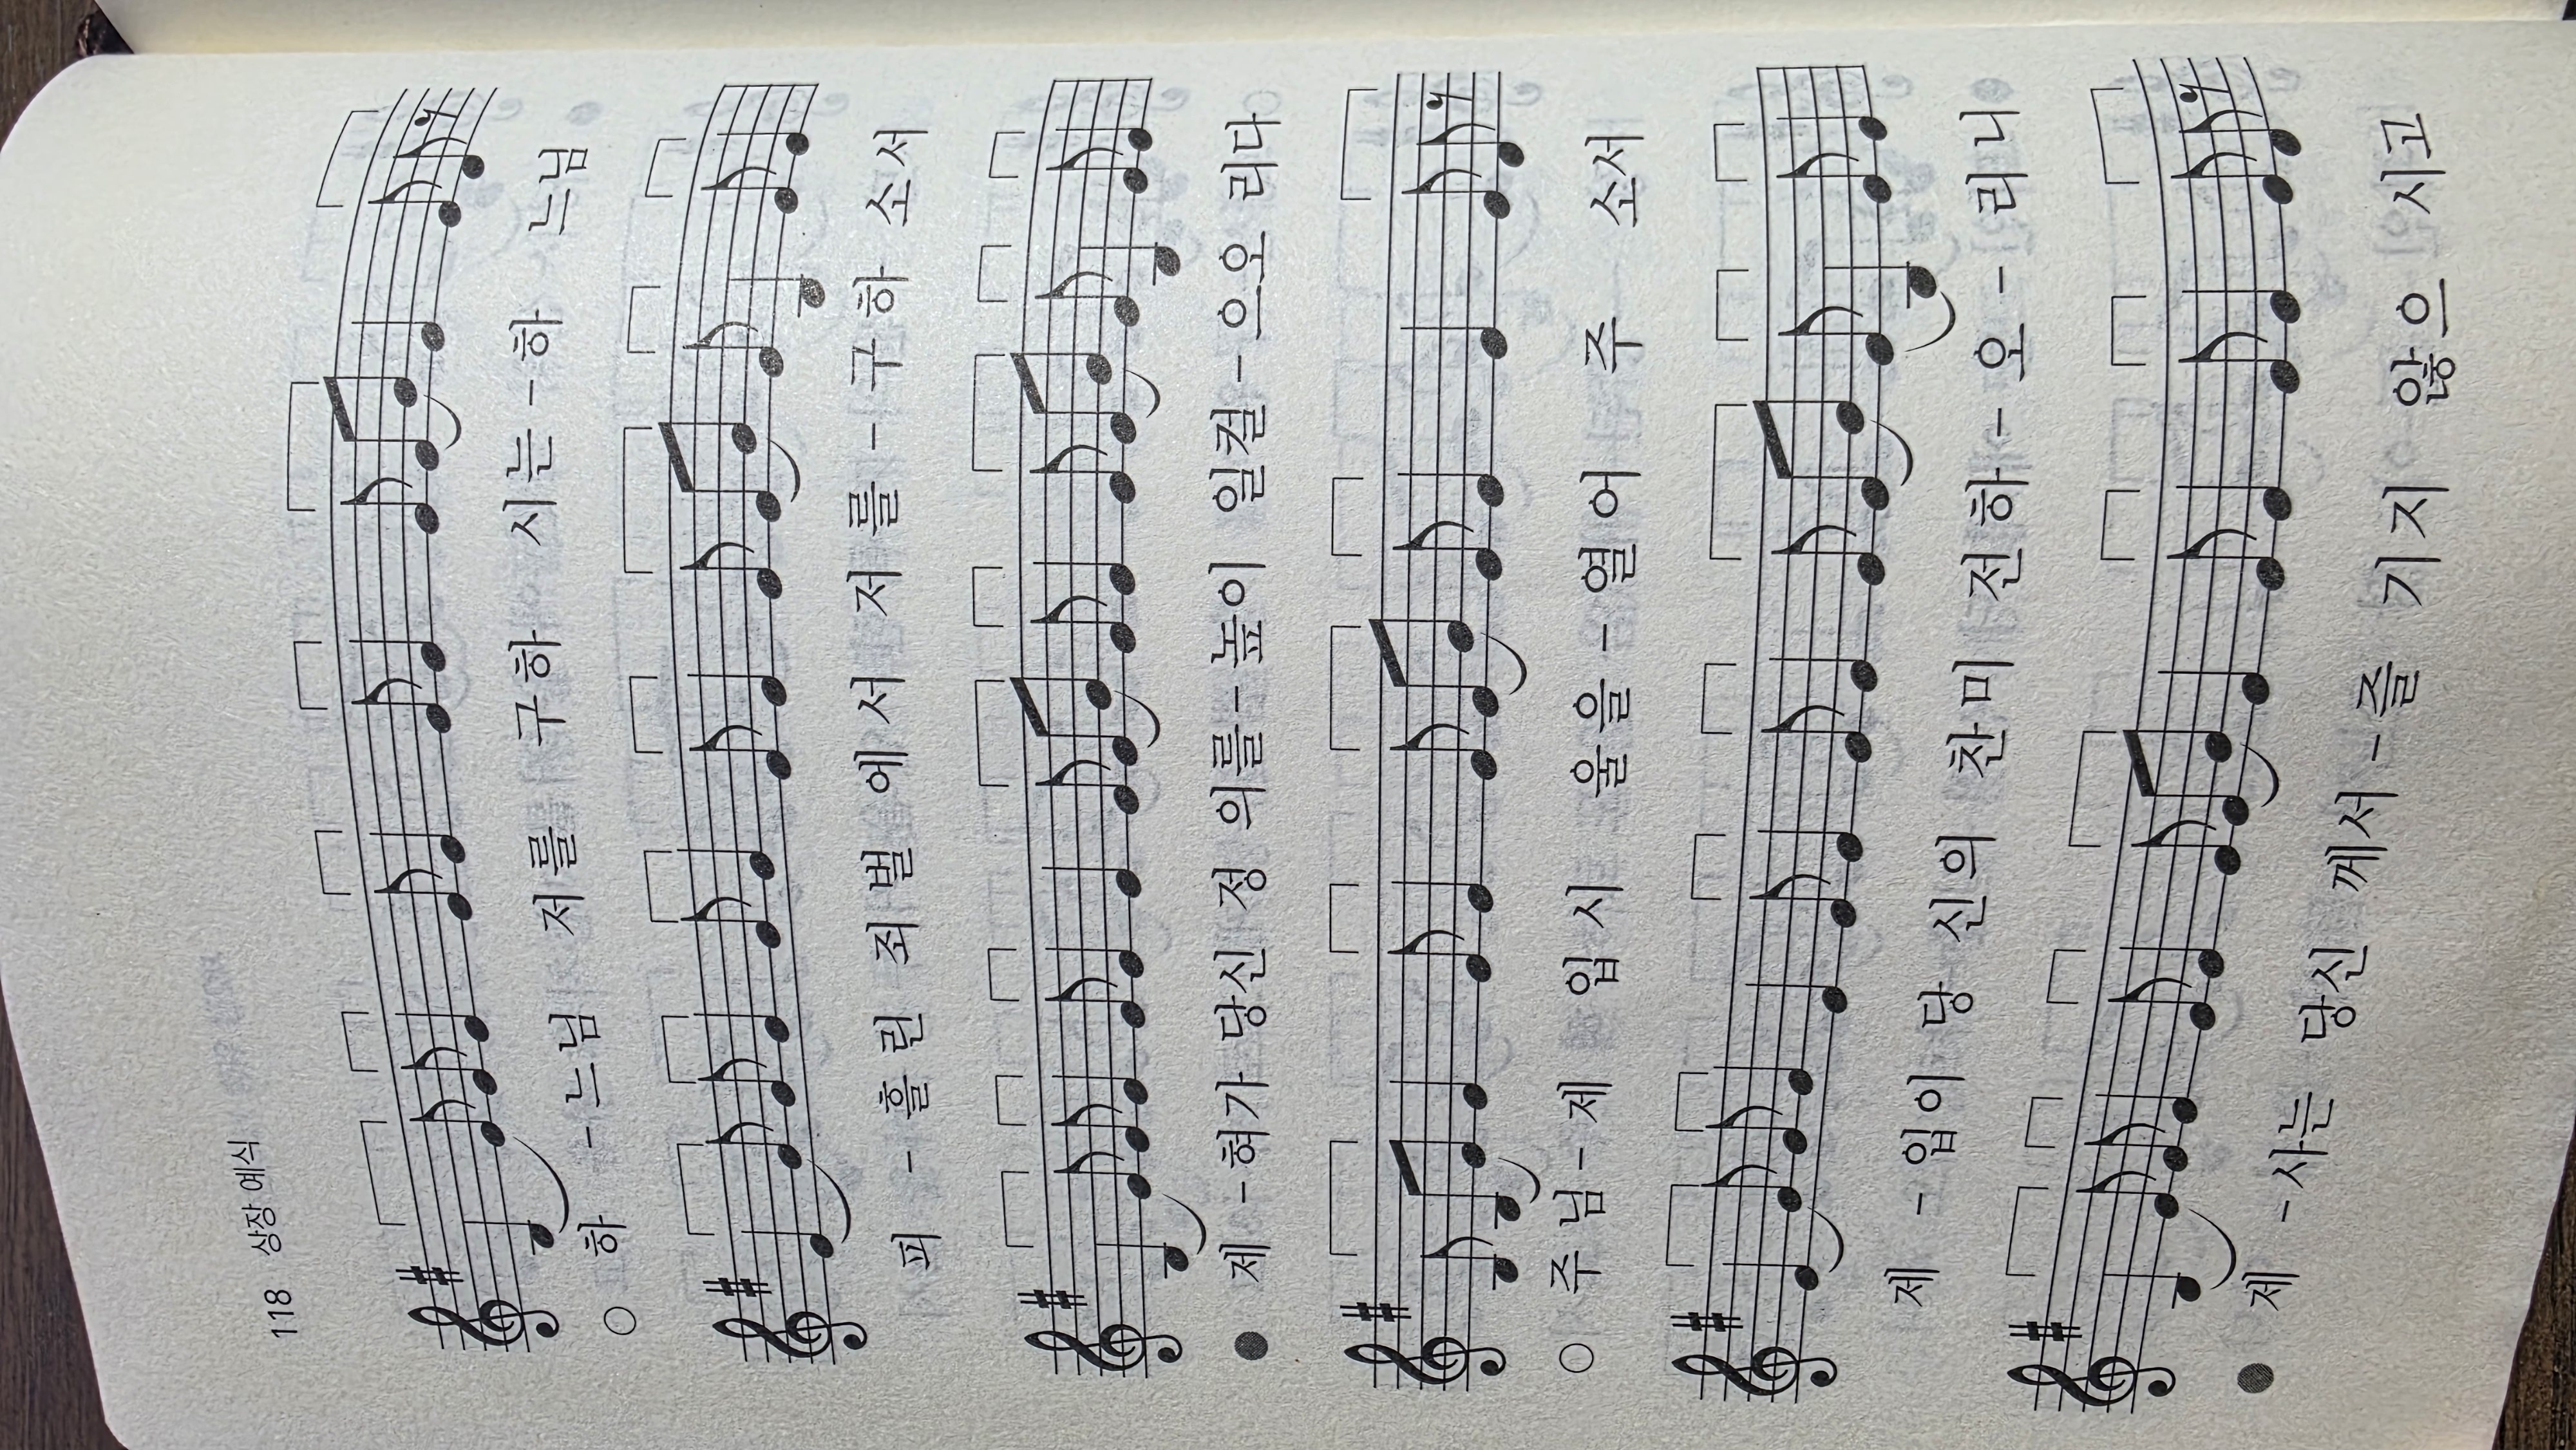 118 상장 예식
○ 하 - 느님 저를 구하 시는 - 하 느님
피 - 흘린 죄벌에서 저를 - 구하 소서
● 제 - 혀가 당신 정 의를 - 높이 일컬 - 으오 리다
○ 주님 - 제 입시 울을 - 열어 주 소서
제 - 입이 당 신의 찬미 전하 - 오 - 리니
● 제 - 사는 당신 께서 - 즐 기지 않으 시고